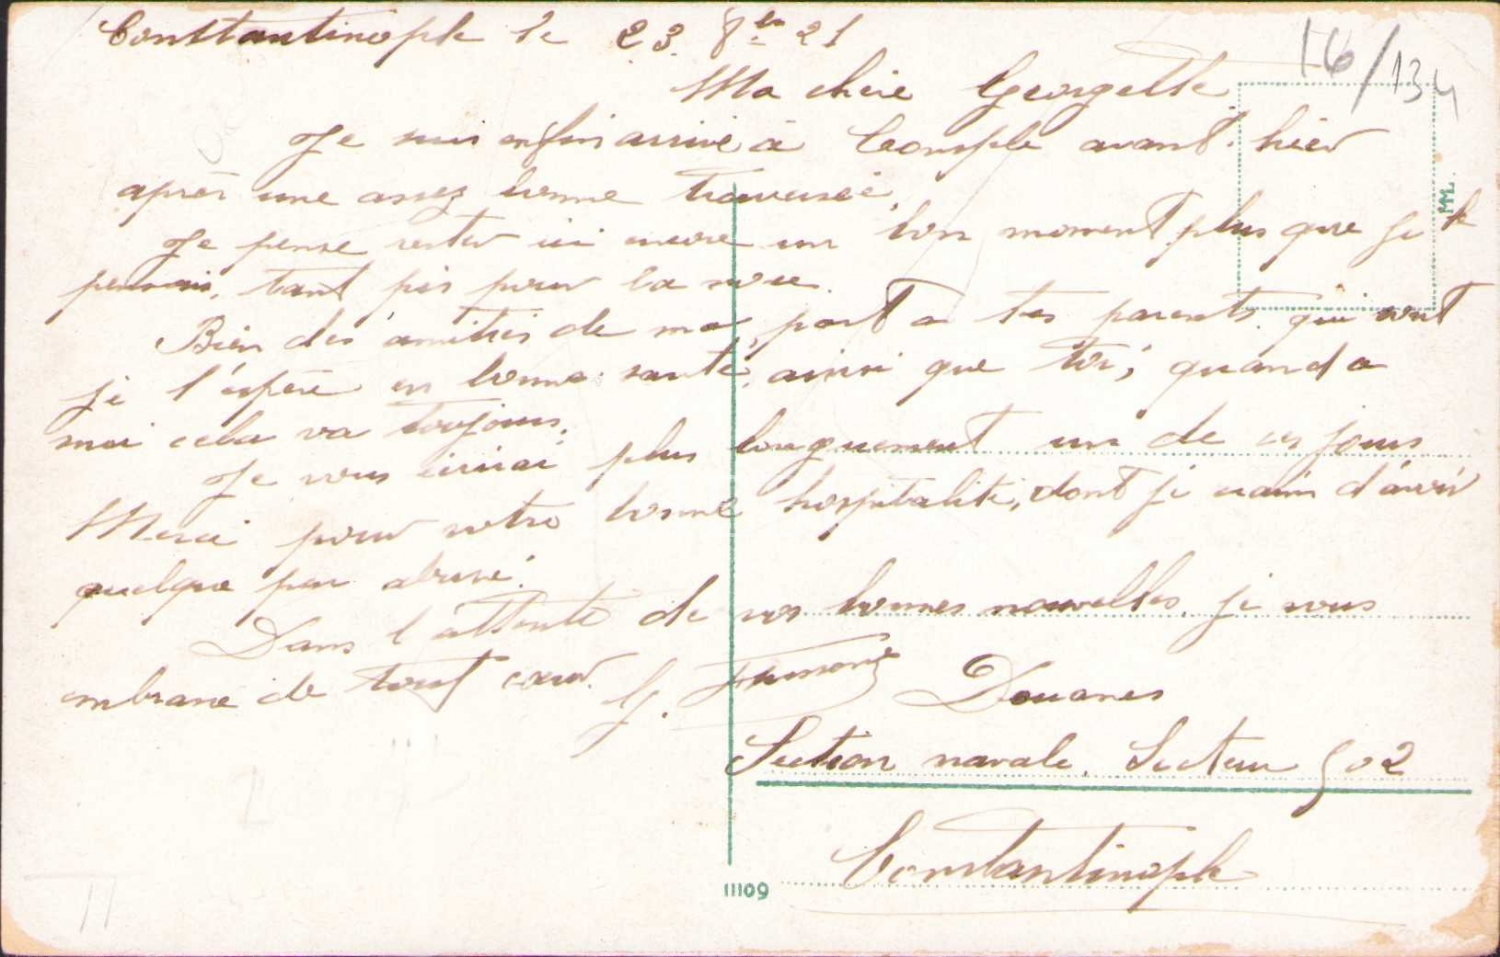 Constantinople le 23 8bre 21
16/134
Ma chère Georgette
Je suis enfin arrivé à Consple avant hier
après une assez bonne traversée.
Je pense rester ici encore un bon moment plus que je le
pensais, tant pis pour la
Bien des amitiés de ma part a tes parents qui sont
je l'espère en bonne santé, ainsi que toi; quand a
moi cela va toujours.
Je vous écrirai plus longuement un de ces jours
Merci pour votre bonne hospitalité, dont je crains d'avoir
quelque peu abusé.
Dans l'attente de vos bonnes nouvelles, je vous
embrasse de tout coeur. G.
Douanes
Section navale. Secteur 502
Constantinople
11109